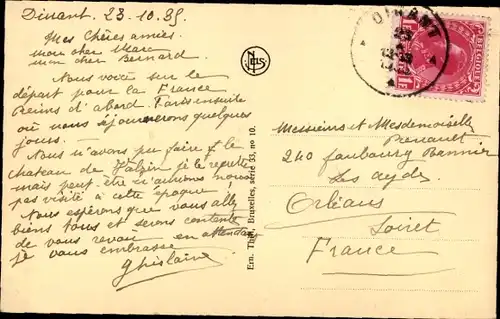 Dinant. 23.10.35.
Mes Chères amies.
mon cher Marc
mon cher Bernard.
Nous voici sur le
départ pour la France
Reims d'abord. Paris ensuite
où nous séjournerons quelques
jours.
Nous n'avons pu faire le
chateau de je le regrette
mais peut-être n'aurions nous
pas visité à cette époque!
Nous espérons que vous allez
bien tous et serons contents
de vous revoir en attendant
je vous embrasse.
Ghislaine
NELS
Ern. Thill, Bruxelles, série 33, no 10.
DINANT
BELGIQUE
1F
1F
Messieurs et Mesdemoiselles
240 faubourg Bannier
Les Aydes
Orléans
Loiret
France